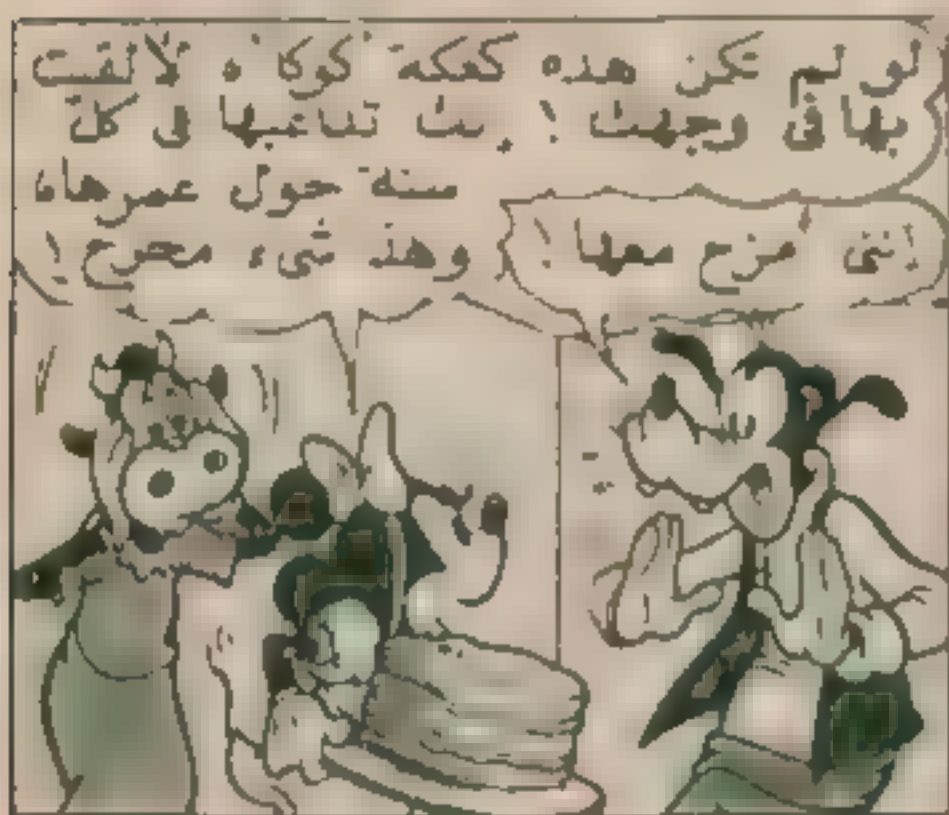 لو لم تكن هذه كعكة كوكا ه لألقيت
بها في وجهك ! . بت تداعبها في كل
سنة حول عمرها،
وهذا شيء محرج !
إنني أمزح معها !